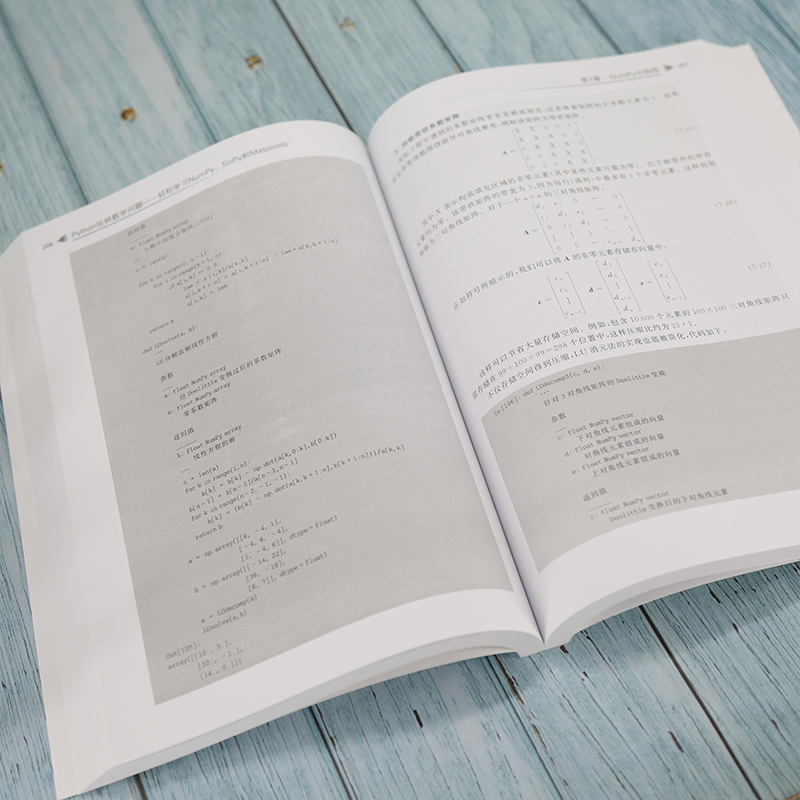 206 Python玩转数学问题——轻松学习NumPy、SciPy和Matplotlib
返回值
a: float NumPy array
n = len(a)
for k in range(0, n-1):
for i in range(k+1, n):
if a[i,k] != 0.0:
lam = a[i,k]/a[k,k]
a[i,k+1:n] = a[i,k+1:n] - lam*a[k,k+1:n]
a[i,k] = lam
return a
def LUsolve(a, b):
'''
LU分解法解线性方程
参数
a: float NumPy array
经 Doolittle 变换过后的系数矩阵
b: float NumPy array
常系数矩阵
返回值
b: float NumPy array
线性方程的解
'''
n = len(a)
for k in range(1,n):
b[k] = b[k] - np.dot(a[k,0:k],b[0:k])
b[n-1] = b[n-1]/a[n-1,n-1]
for k in range(n-2, -1, -1):
b[k] = (b[k] - np.dot(a[k,k+1:n],b[k+1:n]))/a[k,k]
return b
a = np.array([[6, -4, 1],
[-4, 6, -4],
[1, -4, 6]], dtype = float)
b = np.array([[-14, 22],
[36, -18],
[6, 7]], dtype = float)
a = LUdecomp(a)
LUsolve(a,b)
Out[105]:
array([[10., 3.],
[22., -1.],
[14., 0.]])
3. 对称带状系数矩阵
A =
其中 X 表示构成填充区域的非零元素(其中某些元素可能为零)。位于频带外的所有
元素均为零。该带状矩阵的带宽为 3,因为每行(或列)中最多有 3 个非零元素。这样的矩
阵称为三对角线矩阵。对于一个 n×n 的三对角线矩阵,
A =
(7-26)
正如符号所暗示的,我们可以将 A 的非零元素存储在向量中:
c = d = e =
(7-27)
这样可以节省大量存储空间。例如,包含 10 000 个元素的 100×100 三对角线矩阵只
需存储在 99+100+99=298 个位置中,这样压缩比约为 33:1。
不仅存储空间得到压缩,LU 消元法的实现也能被简化,代码如下:
In [106]: def LUdecomp3(c, d, e):
'''
针对 3 对角线矩阵的 Doolittle 变换
参数
c: float NumPy vector
下对角线元素组成的向量
d: float NumPy vector
对角线元素组成的向量
e: float NumPy vector
上对角线元素组成的向量
返回值
c: float NumPy vector
Doolittle 变换后的下对角线元素